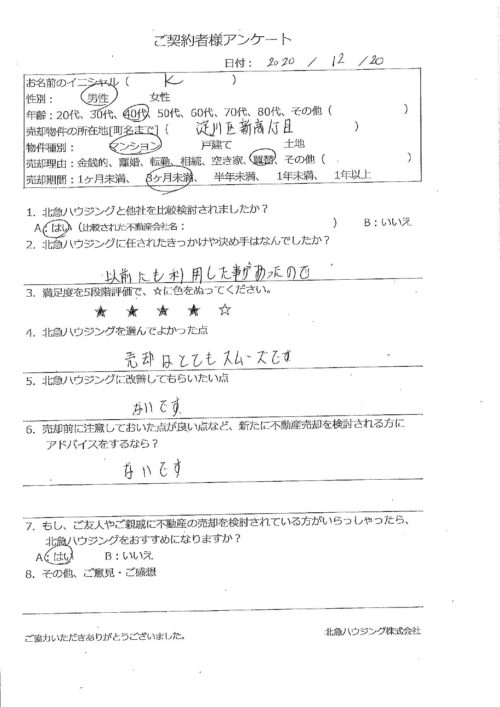 ご契約者様アンケート
日付: 2020 / 12 / 20
お名前のイニシャル( K )
性別: 男性 女性
年齢:20代、30代、40代、50代、60代、70代、80代、その他( )
売却物件の所在地[町名まで]( 淀川区新高 丁目 )
物件種別: マンション 戸建て 土地
売却理由:金銭的、離婚、転勤、相続、空き家、買替、その他( )
売却期間:1ヶ月未満、 3ヶ月未満、 半年未満、 1年未満、 1年以上
1. 北急ハウジングと他社を比較検討されましたか?
A:はい(比較された不動産会社名: ) B:いいえ
2. 北急ハウジングに任されたきっかけや決め手はなんでしたか?
以前にも利用した事があったので
3. 満足度を5段階評価で、☆に色をぬってください。
★ ★ ★ ★ ☆
4. 北急ハウジングを選んでよかった点
売却はとてもスムーズです
5. 北急ハウジングに改善してもらいたい点
ないです
6. 売却前に注意しておいた点が良い点など、新たに不動産売却を検討される方に
アドバイスをするなら?
ないです
7. もし、ご友人やご親戚に不動産の売却を検討されている方がいらっしゃったら、
北急ハウジングをおすすめになりますか?
A:はい B:いいえ
8. その他、ご意見・ご感想
ご協力いただきありがとうございました。
北急ハウジング株式会社